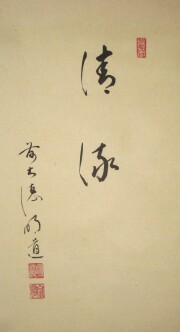 清流
前大徳明道